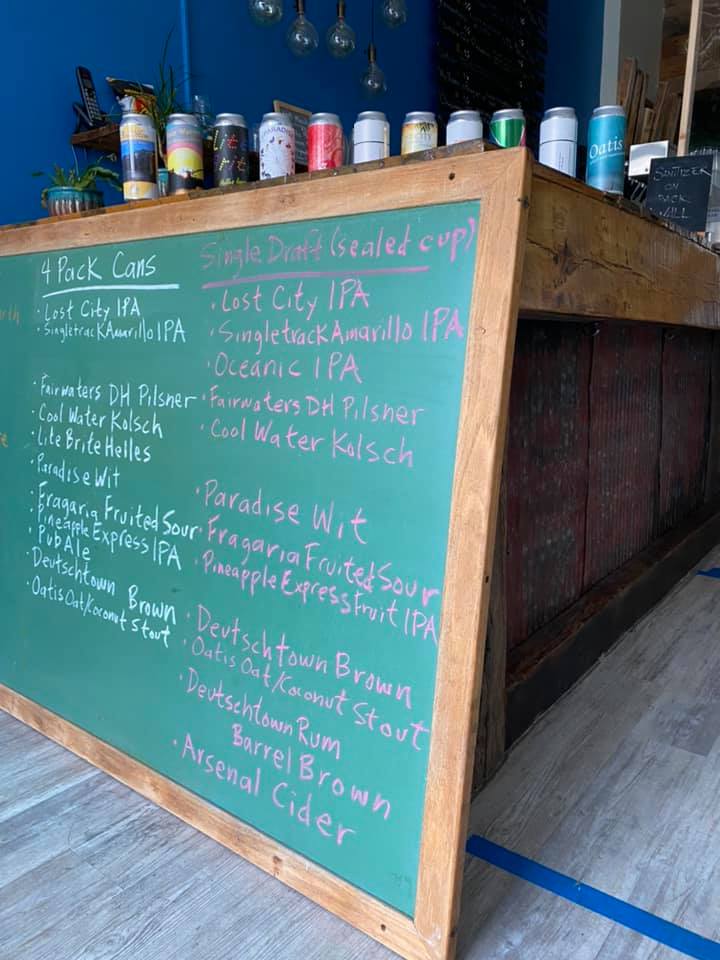 4 Pack Cans
• Lost City IPA
• Singletrack Amarillo IPA
• Fairwaters DH Pilsner
• Cool Water Kolsch
• Lite Brite Helles
• Paradise Wit
• Fragaria Fruited Sour
• Pineapple Express IPA
• Pub Ale
• Deutschtown Brown
• Oatis Oat/Koconut Stout
Single Draft (sealed cup)
• Lost City IPA
• Singletrack Amarillo IPA
• Oceanic IPA
• Fairwaters DH Pilsner
• Cool Water Kolsch
• Paradise Wit
• Fragaria Fruited Sour
• Pineapple Express Fruit IPA
• Deutschtown Brown
• Oatis Oat/Koconut Stout
• Deutschtown Rum
Barrel Brown
• Arsenal Cider
PARADISE
CITY
Oatis
SANITIZER
ON
BACK
WALL